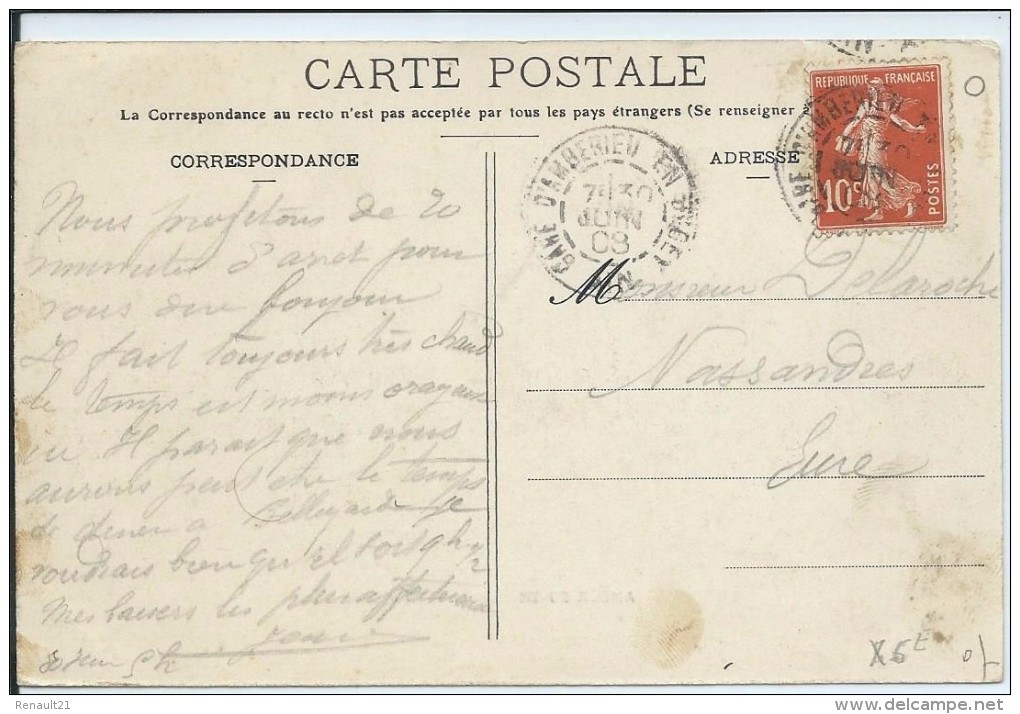 CARTE POSTALE
La Correspondance au recto n'est pas acceptée par tous les pays étrangers (Se renseigner
CORRESPONDANCE
ADRESSE
RÉPUBLIQUE FRANÇAISE
10c
POSTES
GARE D'AMBERIEU EN BUGEY
7 30
JUIN
08
AIN
Nous profitons de 20
minutes d'arret pour
vous dire bonjour
Il fait toujours très chaud
le temps est moins orageux
ici Il parait que nous
aurons peut etre le temps
de diner a Bellegarde je
voudrais bien qu'il soit 9h ½
Mes baisers les plus affectueux
30 Juin 5h
M Monsieur Delaroche
Nassandres
Eure
X5E
Renault21
delcampe.net